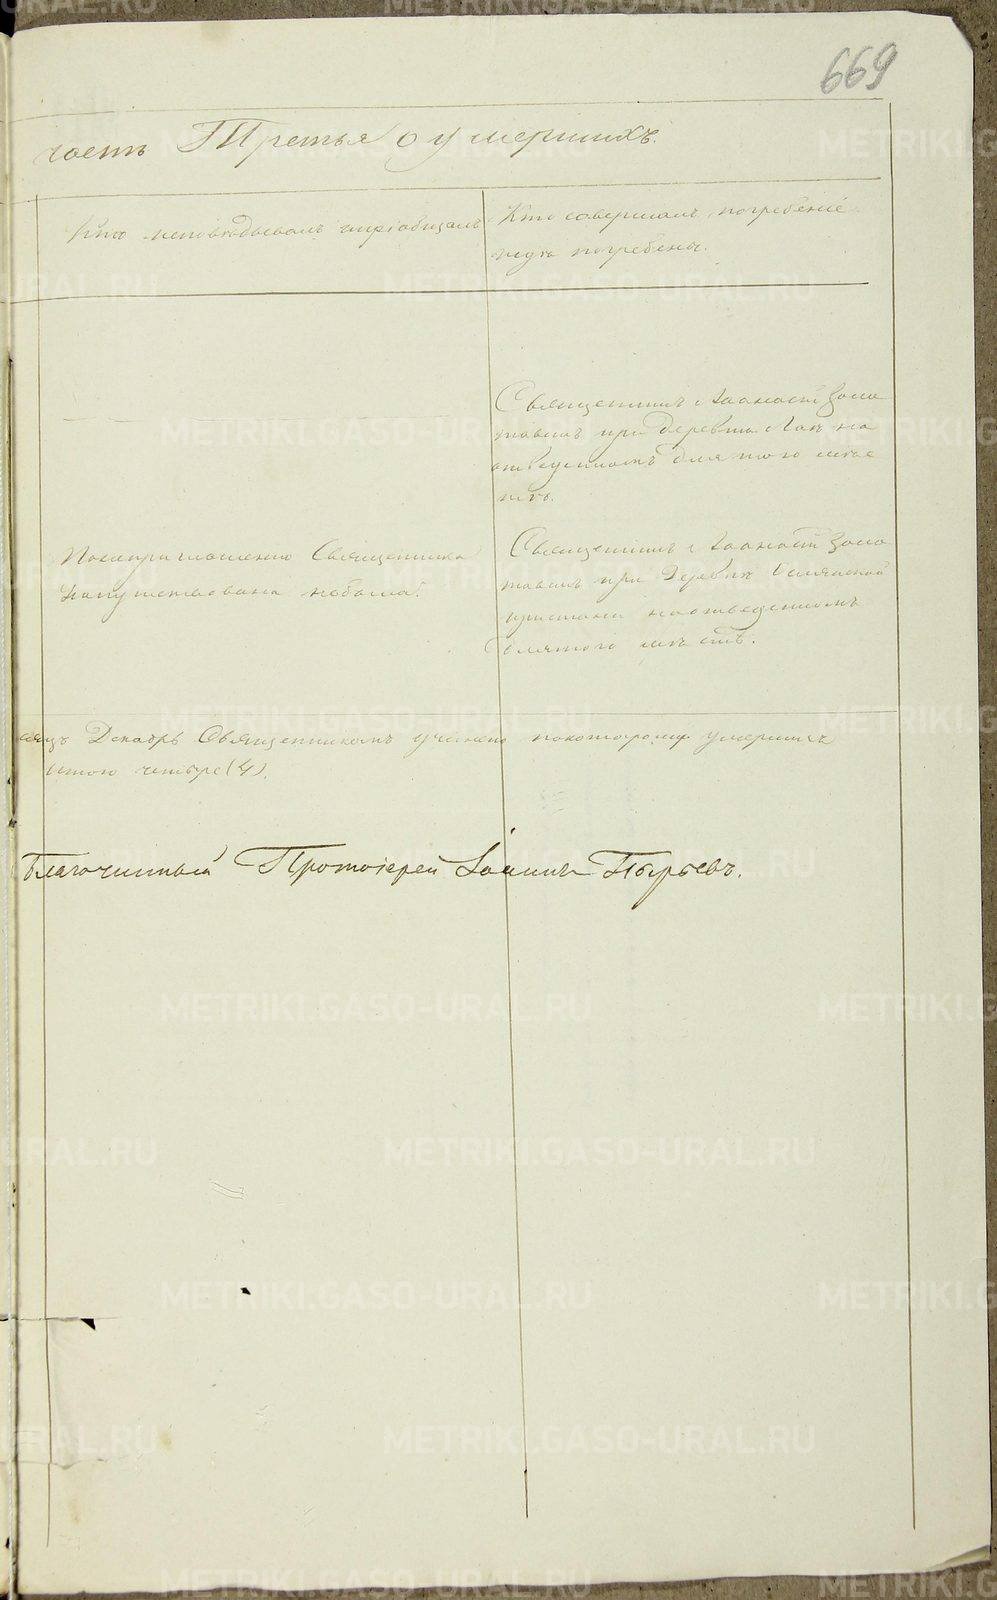 669
часть Третья о умершихъ.
Кто исповѣдывалъ и пріобщалъ
Кто совершалъ погребеніе
и гдѣ погребены.
Священникъ Аѳанасій Золо
тавинъ при деревнѣ
отведенномъ для того мѣс
тѣ.
По неприглашенію Священника
напутствована не была.
Священникъ Аѳанасій Золо
тавинъ при Деревнѣ Ослянской
пристани на отведенномъ
для того мѣстѣ.
Декабрь Священникомъ учинено умершихъ
итого четыре (4).
Благочинный Протоіерей Іоаннъ Пырьевъ.
METRIKI.GASO-URAL.RU